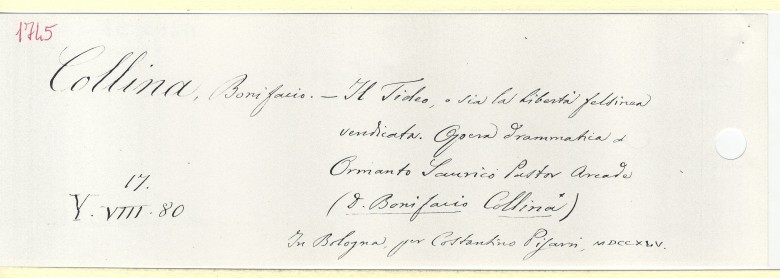 1745
Collina, Bonifacio. — Il Tideo, o sia la libertà felsinea
vendicata. Opera drammatica d
Ormanto Saurico Pastor Arcade
17.
Y. VIII. 80
(D. Bonifacio Collina*)
In Bologna, per Costantino Pisarri, MDCCXLV.